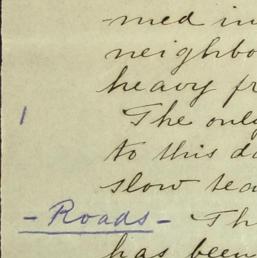 med in
neighbo
heavy fr
The only
to this da
slow tea
- Roads - Th
has been